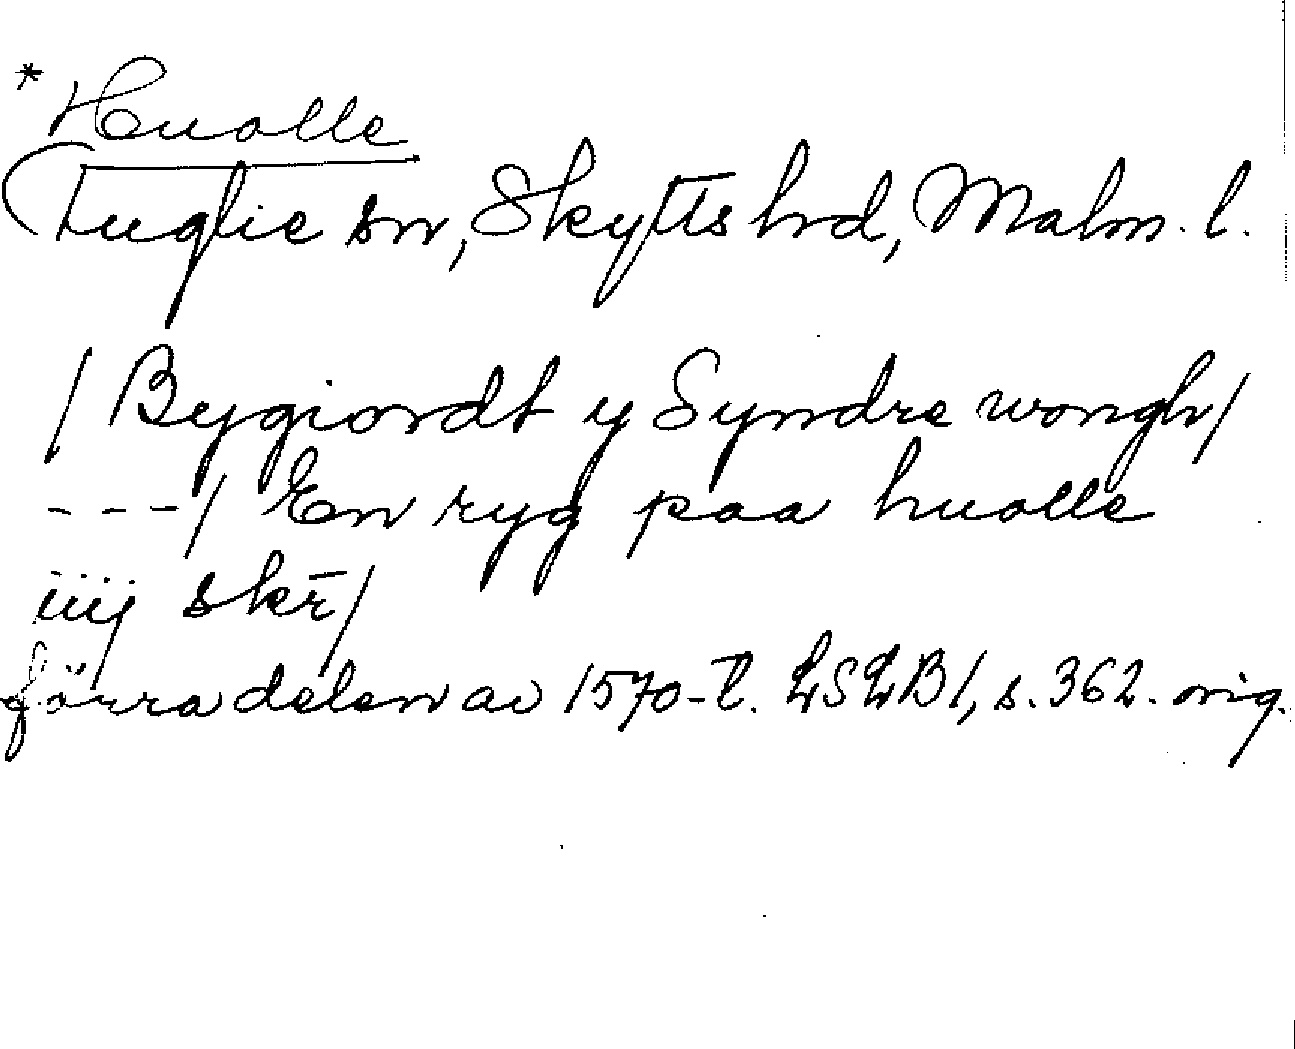 *Huolle
Fuglie sn, Skytts hrd, Malm. l.
/ Bygiordt y Syndre wongh/
---/ En ryg paa huolle
iiij skr̄/
förra delen av 1570-t. LSLB1, s. 362. orig.